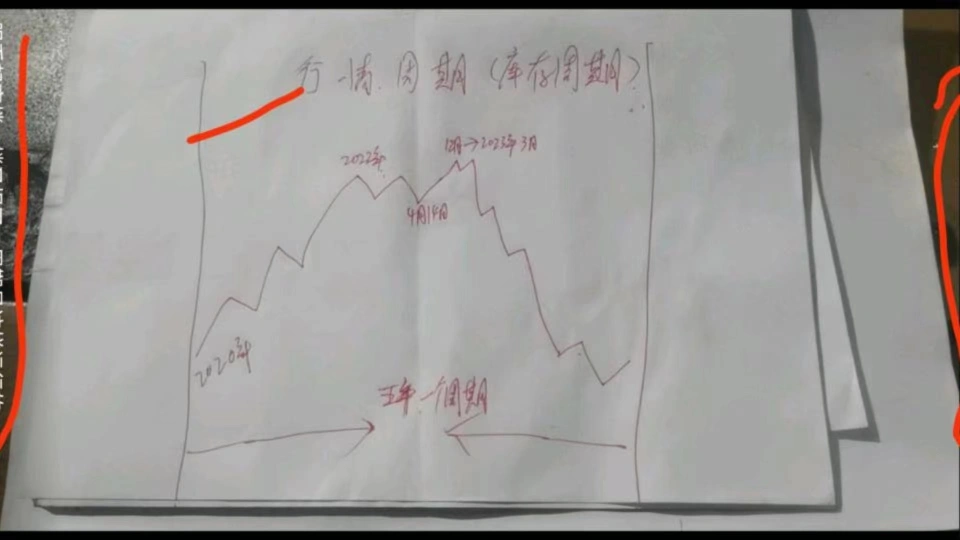 行情周期(库存周期)
2022年
12月→2023年3月
4月14日
2020年
五年一个周期